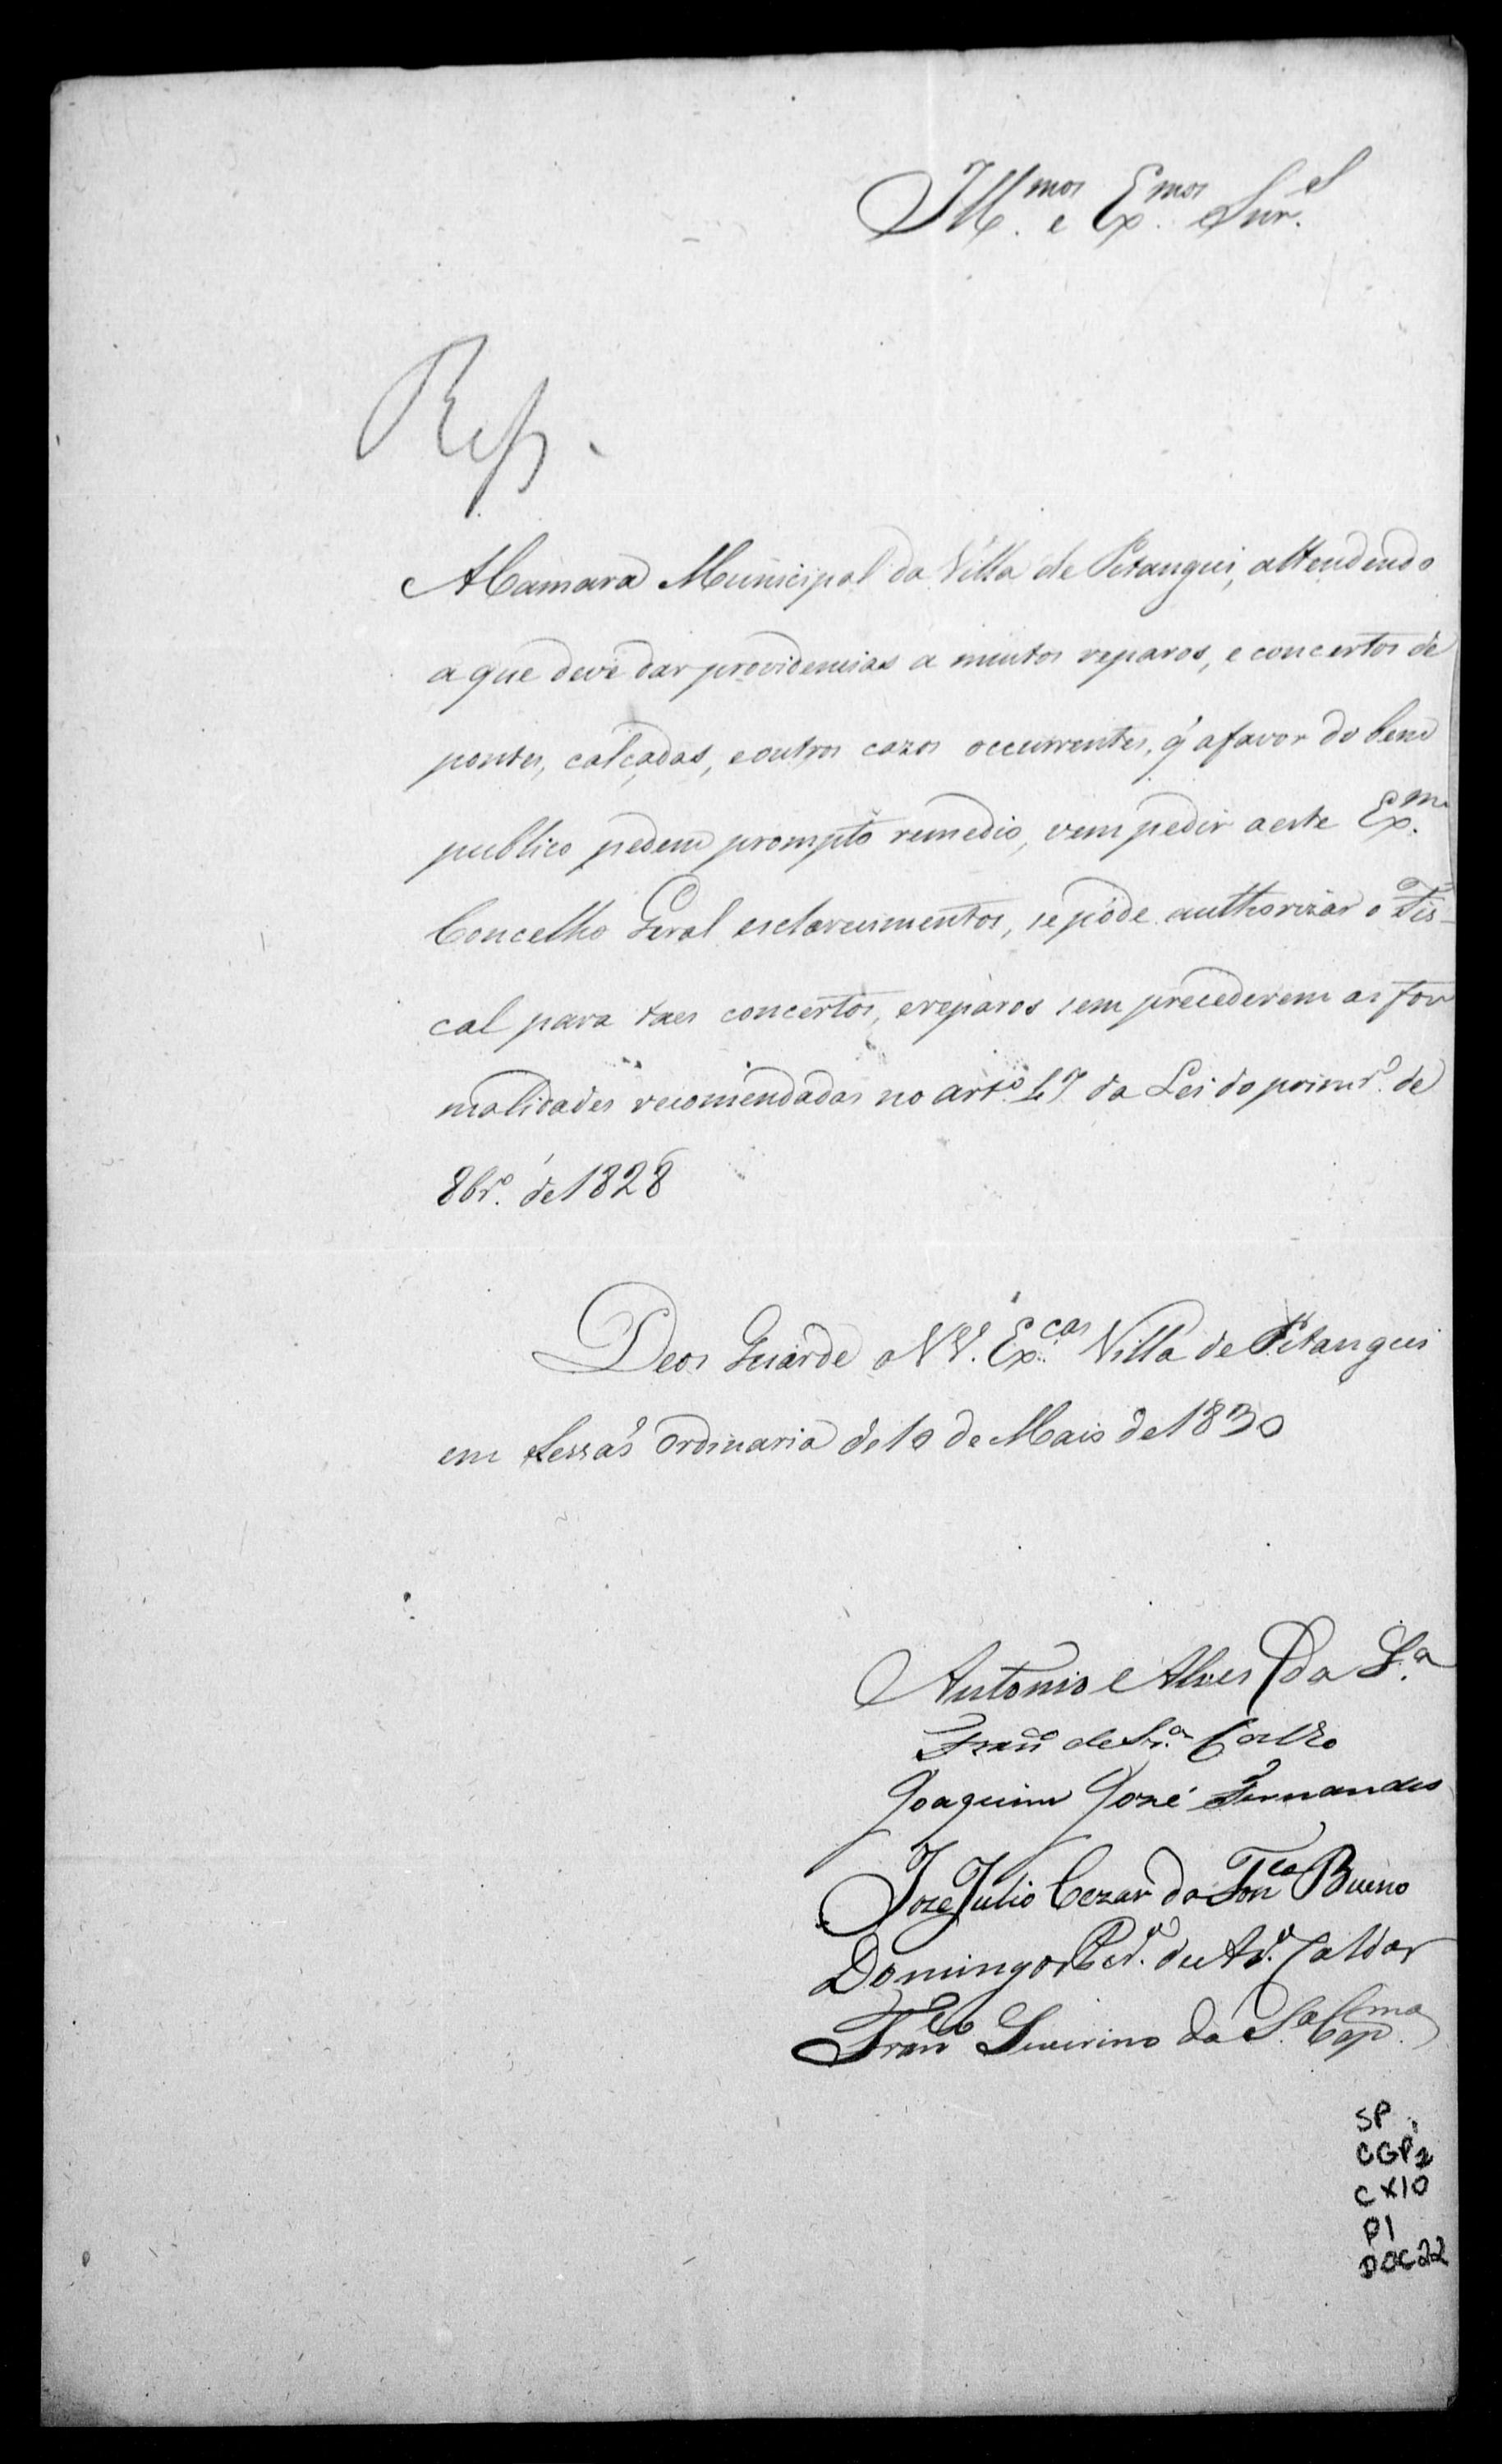 Ill.mos e Ex.mos Snr.es
Resp.
A Camara Municipal da Villa de Pitangui, attendendo
a que deve dar providencias a muitos reparos, e concertos de
pontes, calçadas, e outros cazos occurrentes, q' a favor do bem
publico pedem prompto remedio, vem pedir a este Ex.mo
Concelho Geral esclarecimentos, se póde authorizar o Fis-
cal para taes concertos, e reparos sem precederem as for
malidades recomendadas no art.º 47 da Lei do primr.º de
8br.º de 1828
Deos Guarde a VV. Ex.cas Villa de Pitangui
em Sessaõ Ordinaria de 10 de Maio de 1830
Antonio Alves da S.a
Fran.co de S.a Coelho
Joaquim José Fernandes
Joze Julio Cezar da Fon.ca Bueno
Domingos de Caldas
Fran.co Severino da S.a Cap.ma
SP
CGP2
CX10
P1
DOC22